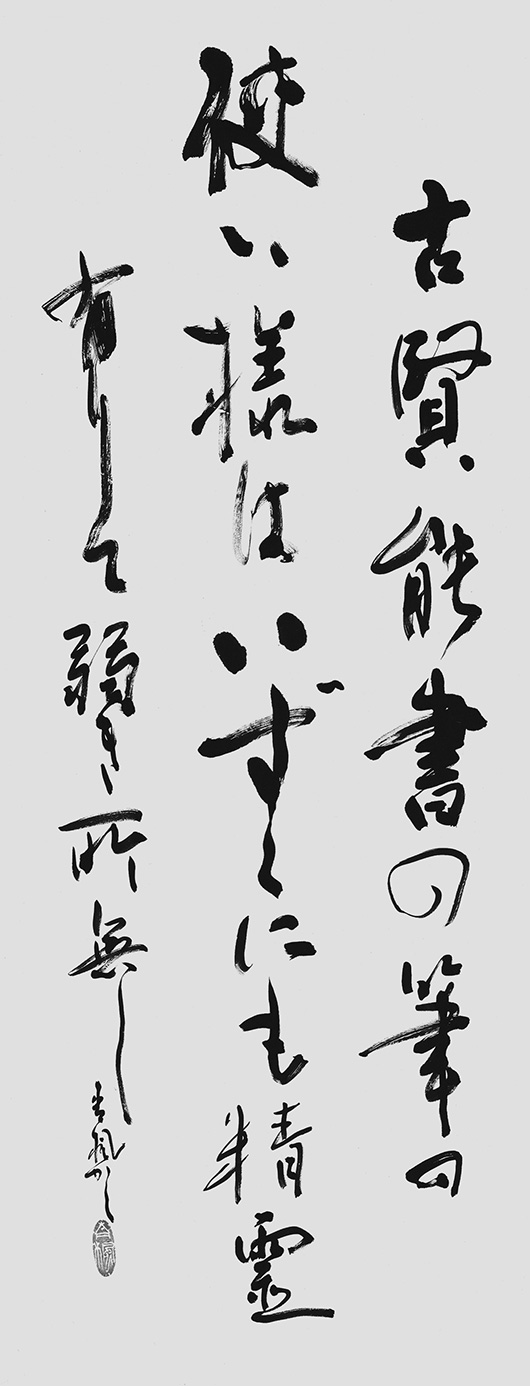 古賢能書の筆の
使い様はいずくにも精靈
有りて弱き所無し